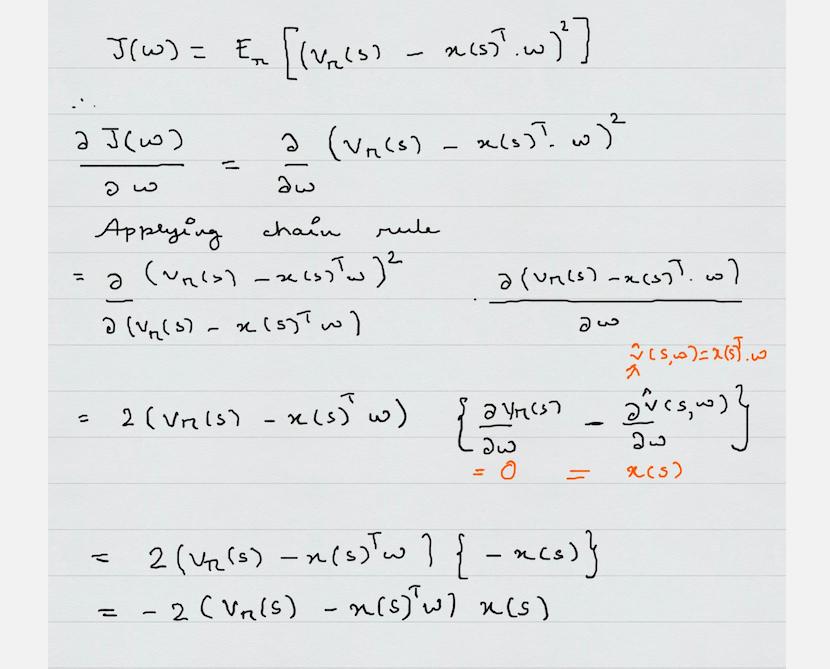 J(w) = E_π [(v_π(s) - x(s)^T . w)^2]
∴
∂ J(w) / ∂w = ∂/∂w (v_π(s) - x(s)^T . w)^2
Applying chain rule
= ∂ (v_π(s) - x(s)^T w)^2 / ∂ (v_π(s) - x(s)^T w) . ∂ (v_π(s) - x(s)^T . w) / ∂w
v̂(s,w) = x(s)^T . w
= 2 (v_π(s) - x(s)^T w) { ∂v_π(s)/∂w - ∂v̂(s,w)/∂w }
= 0 = x(s)
= 2 (v_π(s) - x(s)^T w) { - x(s) }
= - 2 (v_π(s) - x(s)^T w) x(s)